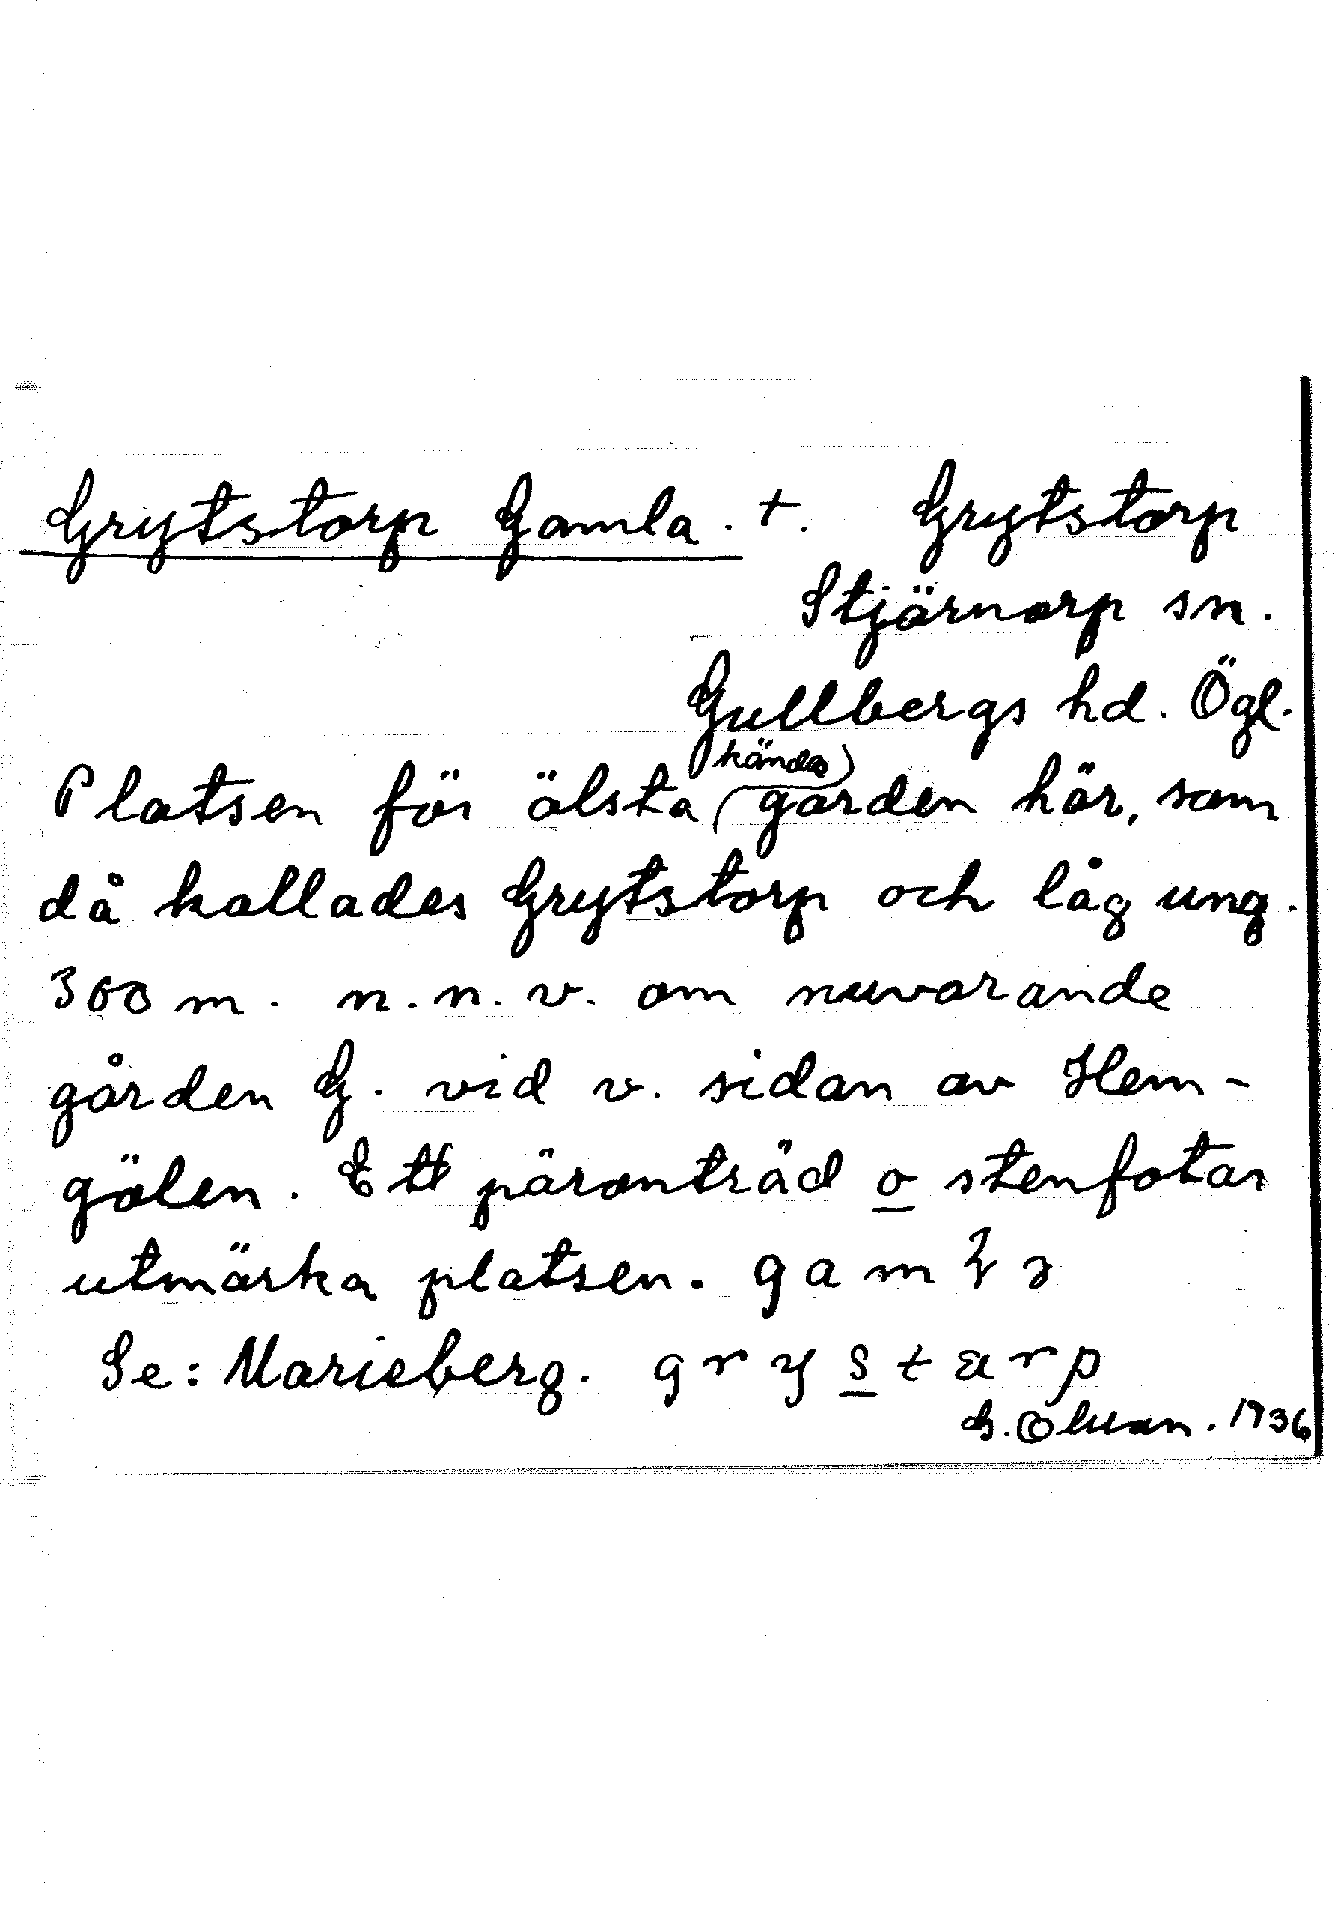 Grytstorp Gamla. +. Grytstorp
Stjärnorp sn.
Gullbergs hd. Ögl.
Platsen för älsta kända gården här, som
då kallades Grytstorp och låg ung.
300 m. n.n.v. om nuvarande
gården G. vid v. sidan av Hem-
gölen. Ett päronträd o stenfotar
utmärka platsen. gamɫa
Se: Marieberg. grystarp
G. Olsson. 1936